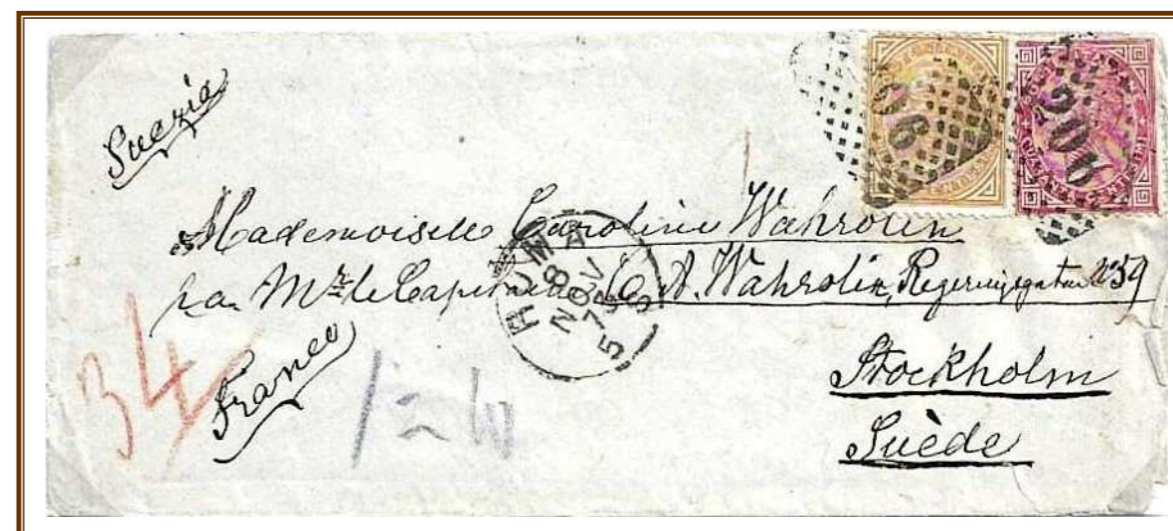 Suezia
Mademoiselle Caroline Wahrolin
par Mr. le Capitaine C. A. Wahrolin, Regeringsgatan No 59
Stockholm
Suède
Franco
34
ROMA
8
NOV
73
5 S
207